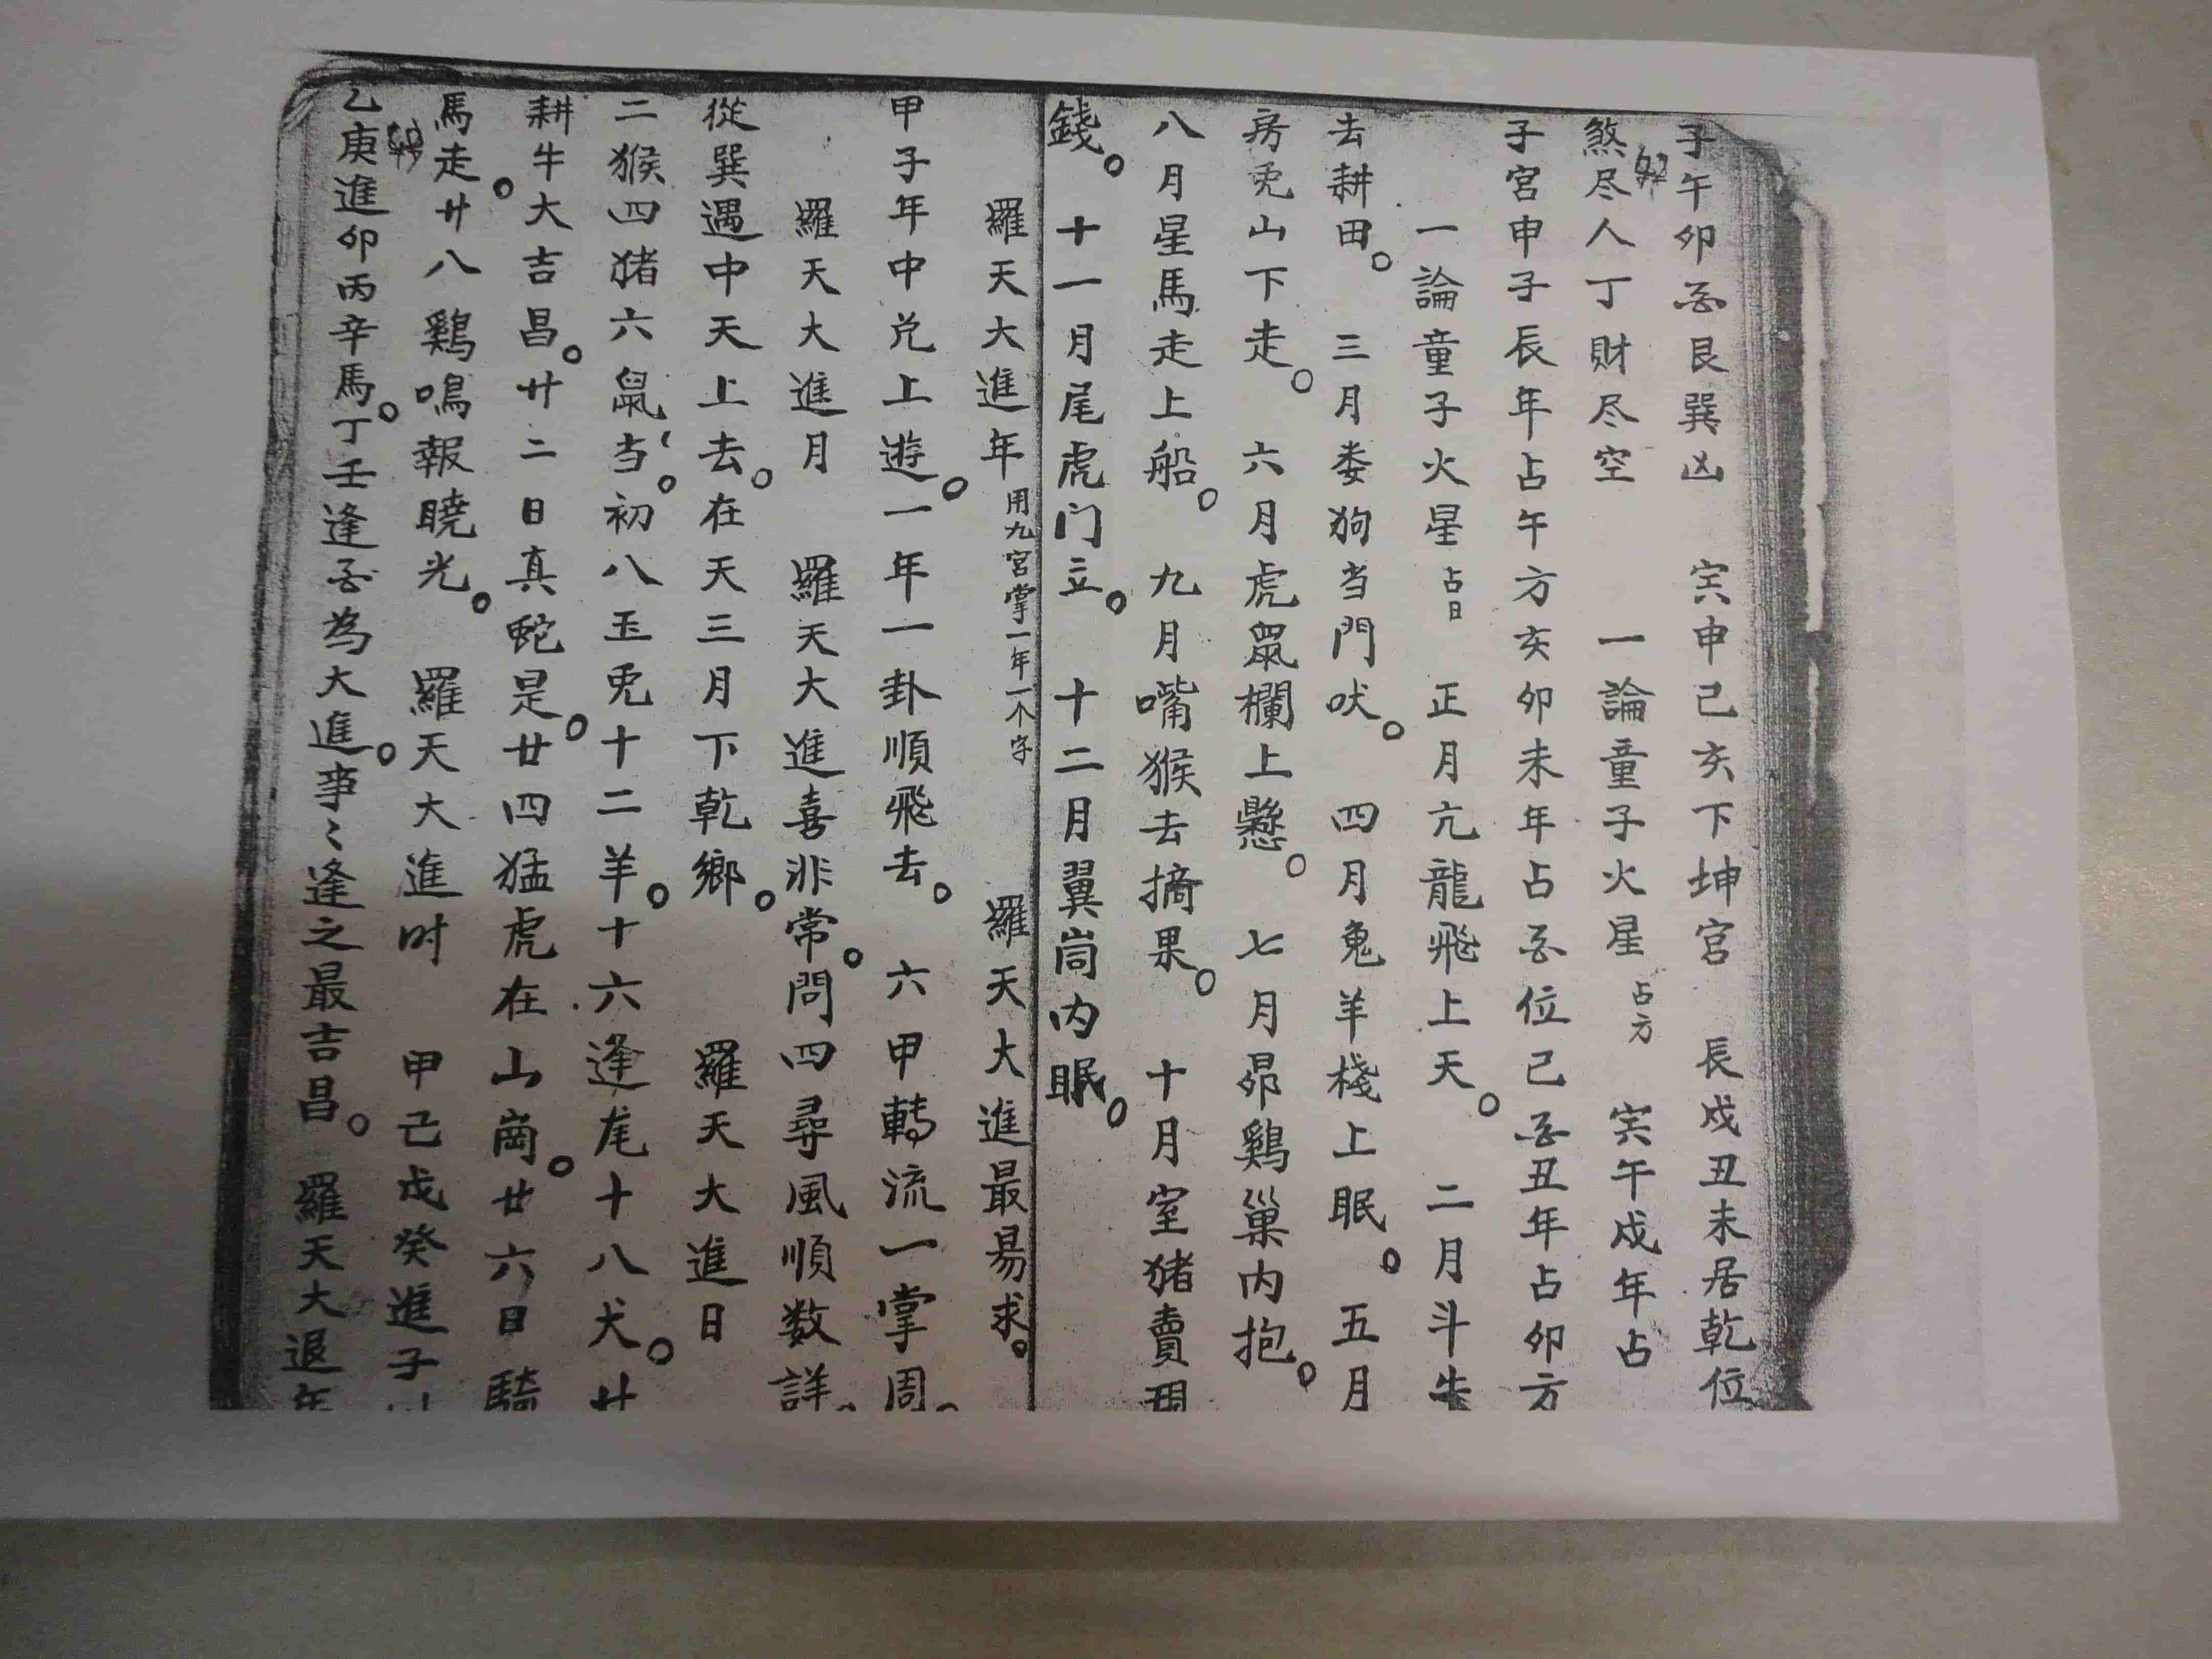 子午卯酉艮巽凶　寅申巳亥下坤宮　長戌丑未居乾位
煞尽人丁財尽空　一論童子火星 占方　寅午戌年占
子宮申子辰年占午方亥卯未年占酉位巳酉丑年占卯方
一論童子火星 占日　正月亢龍飛上天。二月斗牛
去耕田。三月娄狗当門吠。四月鬼羊棧上眠。五月
房兎山下走。六月虚鼠欄上懸。七月昴鷄巢内抱。
八月星馬走上船。九月嘴猴去摘果。十月室猪賣現
錢。十一月尾虎门立。十二月翼峝内眠。
羅天大進年 用九宮掌一年一个字　羅天大進最易求。
甲子年中兑上遊。一年一卦順飛去。六甲轉流一掌周。
羅天大進月　羅天大進喜非常。問四尋風順数詳。
從巽遇中天上去。在天三月下乾鄉。羅天大進日
二猴四猪六鼠当。初八玉兎十二羊。十六逢尾十八犬。廿
耕牛大吉昌。廿二日真蛇是。廿四猛虎在山崗。廿六日騎
馬走。廿八鷄鳴報曉光。羅天大進时　甲己戊癸進子
乙庚進卯丙辛馬。丁壬逢酉為大進。事〻逢之最吉昌。羅天大退年